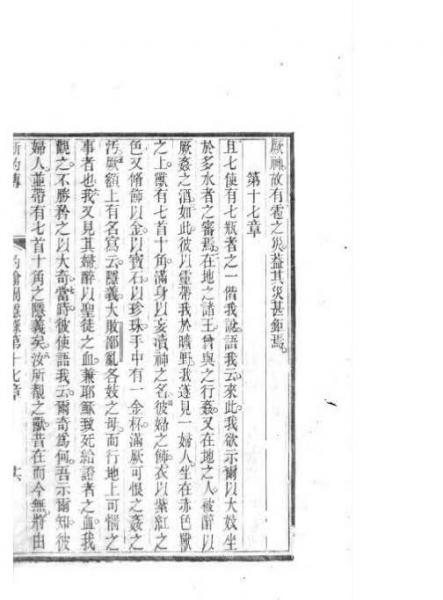 厥禍故有雹之災葢其災甚鉅焉
第十七章
且七使有七瓶者之一偕我說語我云來此我欲示爾以大妓坐
於多水者之審焉在地之諸王曾與之行姦又在地之人被醉以
厥姦之酒如此彼以靈帶我於曠野我遂見一婦人坐在赤色獸
之上獸有七首十角滿身以亥瀆神之名彼婦之飾衣以紫紅之
色又脩飾以金以寶石以珍珠手中有一金杯滿厥可恨之姦之
汚厥額上有名寫云隱義大敗鄙亂各妓之母而行地上可惱之
事者也我又見其婦醉以聖徒之血兼耶穌致死給證者之血我
觀之不勝矜之以大奇當時彼使語我云爾奇爲何吾示爾知彼
婦人並帶有七首十角之獸隱義矣汝所覩之獸昔在而今無將由
第十七章